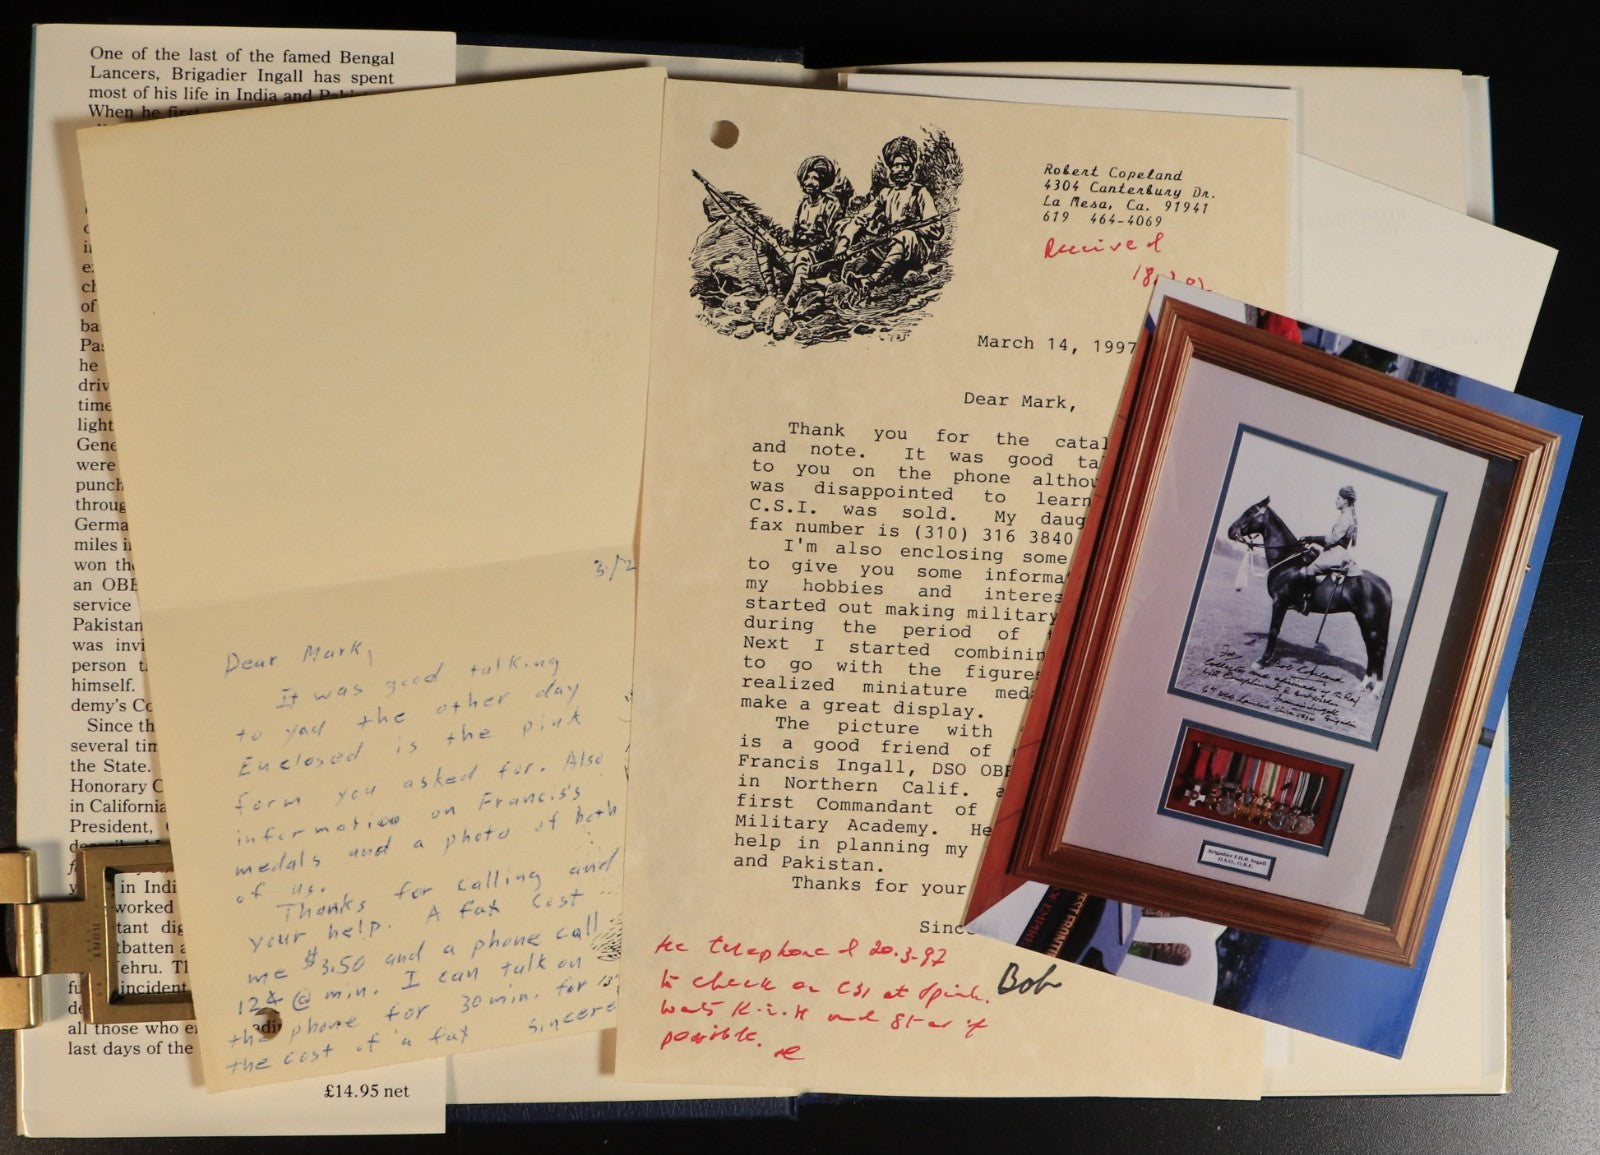 One of the last of the famed Bengal
Lancers, Brigadier Ingall has spent
most of his life in India and
When he first
of
he
driv
time
light
Gene
were
punch
throug
Germa
miles i
won th
an OBE
service
Pakistan
was invi
person t
himself.
demy's Co
Since th
several tim
the State.
Honorary C
in California
President,
in Indi
worked
tant dig
tbatten a
Nehru. Th
incident
all those who e
last days of the
£14.95 net
Dear Mark,
It was good talking
to you the other day
Enclosed is the pink
form you asked for. Also
information on Francis's
medals and a photo of both
of us.
Thanks for calling and
your help. A fax cost
me $3.50 and a phone call
12¢ @ min. I can talk on
the phone for 30 min. for
the cost of a fax sincere
Robert Copeland
4304 Canterbury Dr.
La Mesa, Ca. 91941
619 464-4069
Received
March 14, 1997
Dear Mark,
Thank you for the catal
and note. It was good ta
to you on the phone althou
was disappointed to learn
C.S.I. was sold. My daug
fax number is (310) 316 3840
I'm also enclosing some
to give you some informa
my hobbies and interes
started out making military
during the period of t
Next I started combinin
to go with the figures
realized miniature med
make a great display.
The picture with
is a good friend of
Francis Ingall, DSO OBE
in Northern Calif. a
first Commandant of
Military Academy. He
help in planning my
and Pakistan.
Thanks for your
Since
Bob
telephoned 20.3.97
to check on CSI at Spink.
wants K-i-H and Star if
possible.
Bob Copeland
Francis Ingall
Brigadier
Brigadier F.H.B. Ingall
D.S.O., O.B.E.